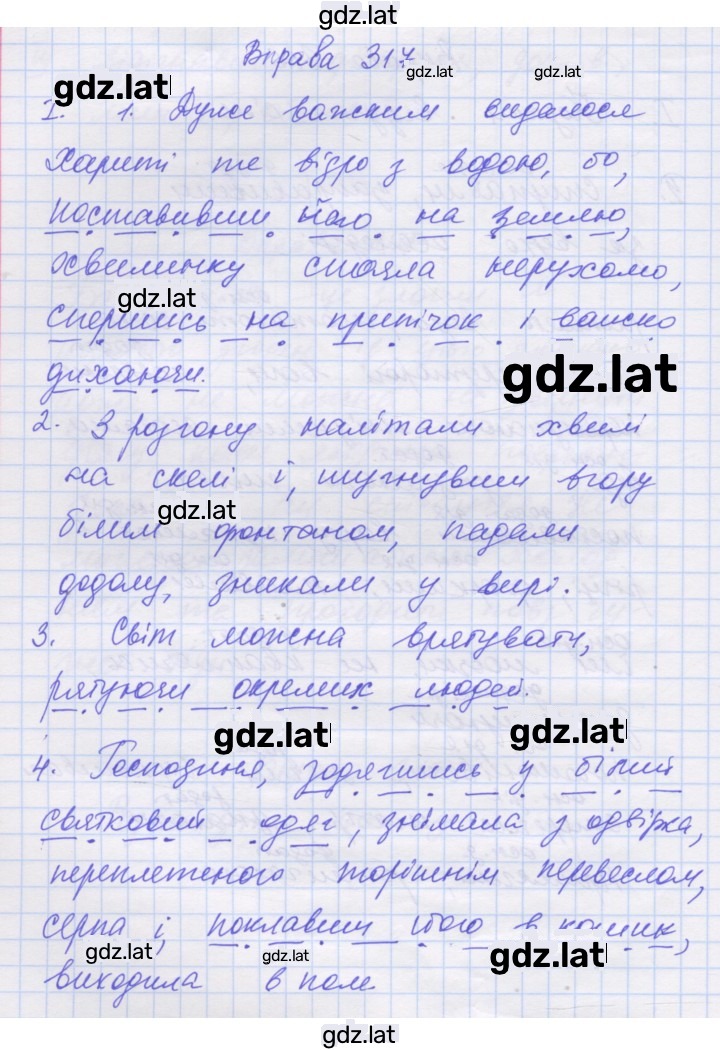 gdz.lat
Вправа 317
gdz.lat
gdz.lat
gdz.lat
I. 1. Дуже важким видалося
Хариті те відро з водою, бо,
поставивши його на землю,
хвилинку стояла нерухомо,
gdz.lat
спершись на припічок і важко
дихаючи.
gdz.lat
2. З розгону налітали хвилі
на скелі і, шугнувши вгору
gdz.lat
білим фонтаном, падали
додолу, зникали у вирі.
3. Світ можна врятувати,
рятуючи окремих людей.
gdz.lat
gdz.lat
4. Господиня, зодягшись у білий
святковий одяг, знімала з одвірка,
переплетеного торішнім перевеслом,
серпа і, поклавши його в кошик,
gdz.lat
gdz.lat
gdz.lat
виходила в поле
gdz.lat